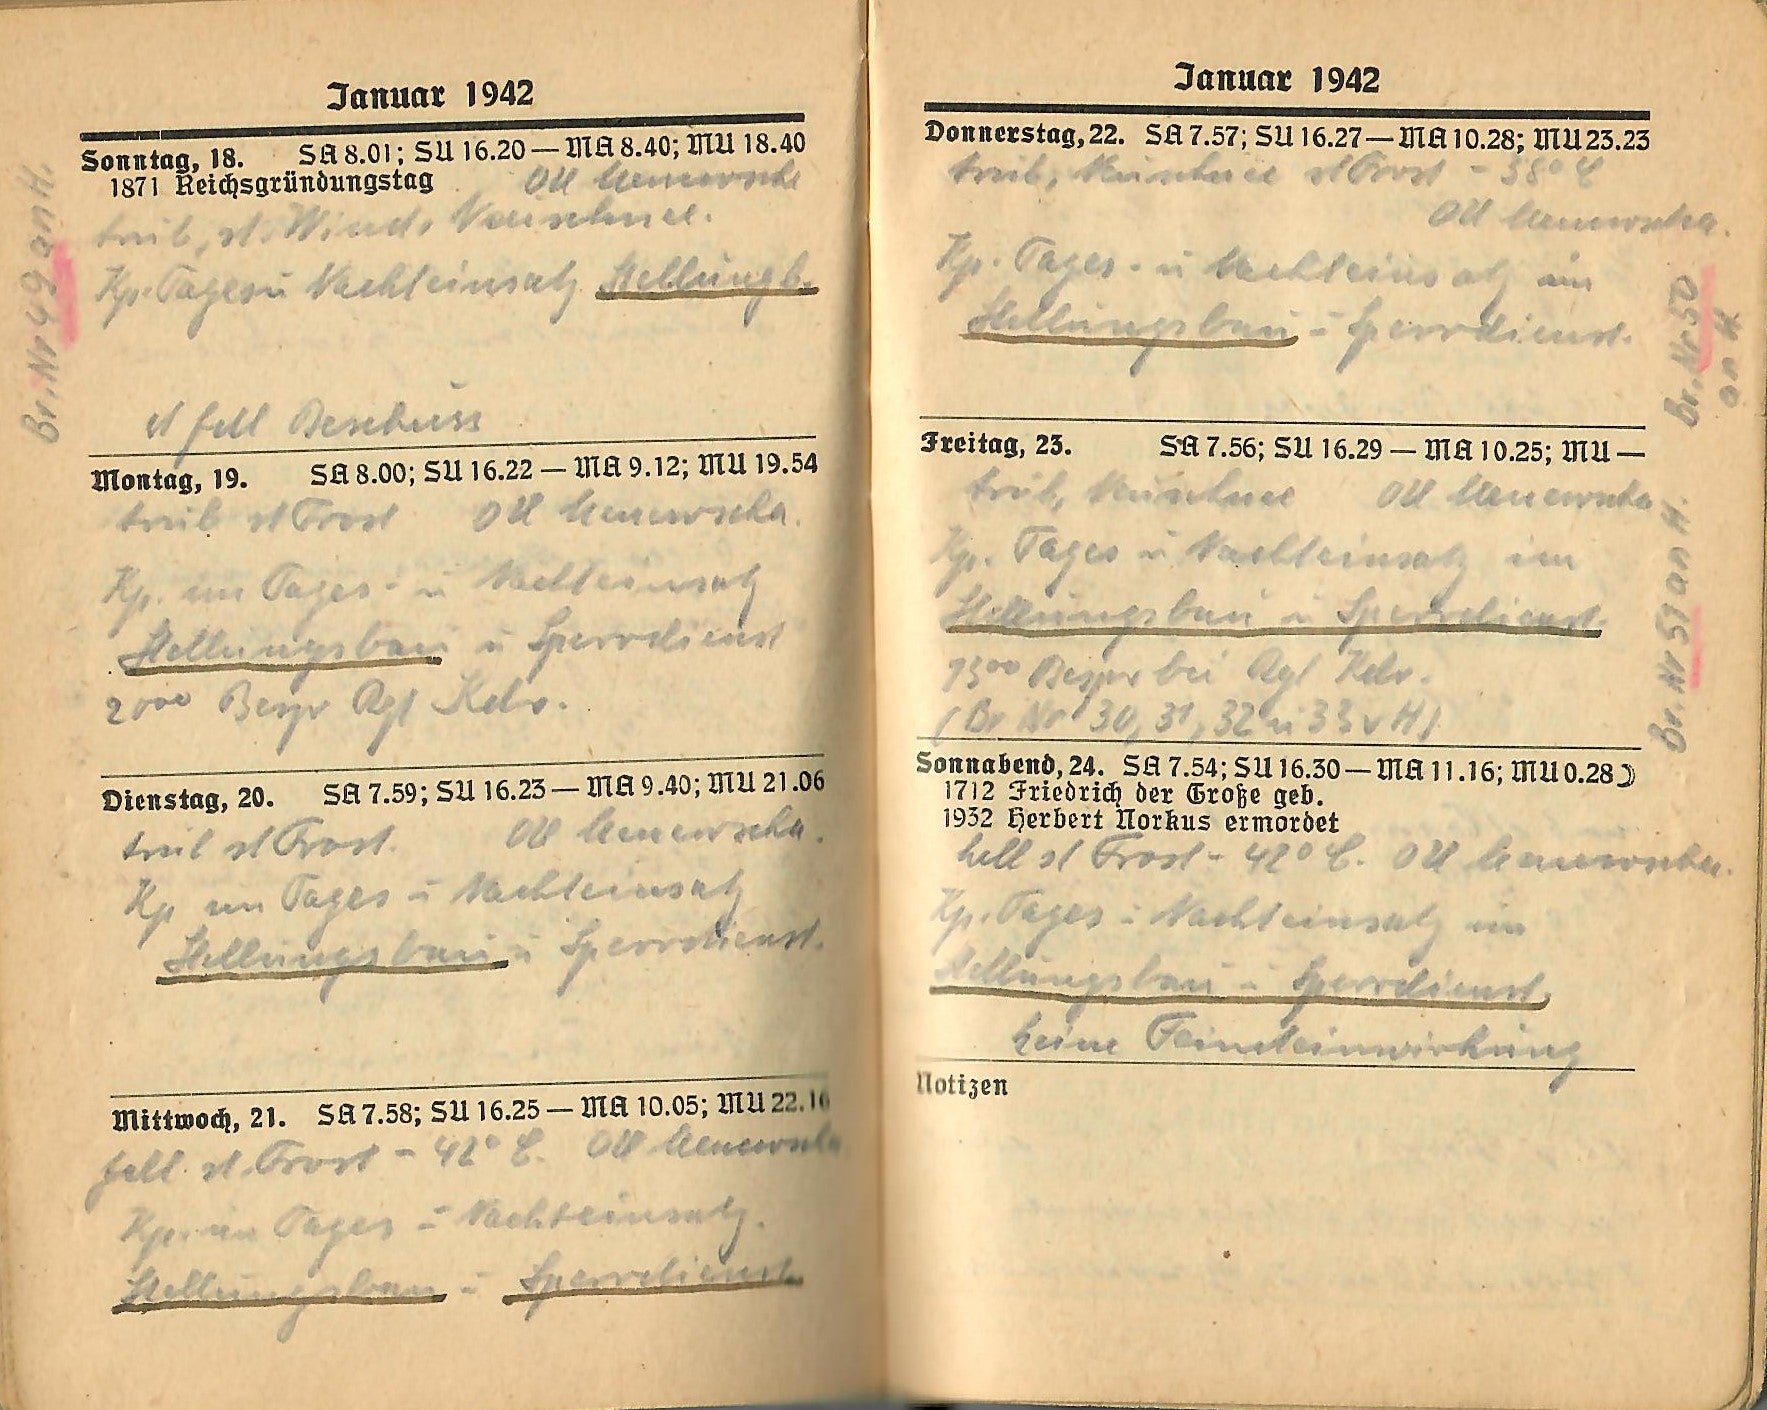 Januar 1942
Sonntag, 18. SA 8.01; SU 16.20 — MA 8.40; MU 18.40
1871 Reichsgründungstag OU
trüb, st. Wind, Neuschnee.
Kp. Tages u Nachteinsatz Stellungb.
st Beschuss
Br. Nr 49 an H.
Montag, 19. SA 8.00; SU 16.22 — MA 9.12; MU 19.54
trüb st Frost OU
Kp. im Tages- u Nachteinsatz
Stellungsbau u Sperrdienst
20⁰⁰ Bespr Rgt Kdr.
Dienstag, 20. SA 7.59; SU 16.23 — MA 9.40; MU 21.06
trüb st Frost. OU
Kp im Tages u Nachteinsatz
Stellungsbau u Sperrdienst.
Mittwoch, 21. SA 7.58; SU 16.25 — MA 10.05; MU 22.16
st Frost - 42° C. OU
Kp. im Tages u Nachteinsatz.
Stellungsbau u Sperrdienst.
Januar 1942
Donnerstag, 22. SA 7.57; SU 16.27 — MA 10.28; MU 23.23
trüb, Neuschnee st Frost - 38° C
OU
Kp. Tages- u Nachteinsatz im
Stellungsbau u Sperrdienst.
Br. Nr 50
an H
Freitag, 23. SA 7.56; SU 16.29 — MA 10.25; MU —
trüb, Neuschnee OU
Kp. Tages u Nachteinsatz im
Stellungsbau u Sperrdienst.
Bespr bei Rgt Kdr.
(Br Nr 30, 31, 32 u 33 v H)
Br. Nr 51 an H.
Sonnabend, 24. SA 7.54; SU 16.30 — MA 11.16; MU 0.28 ☽
1712 Friedrich der Große geb.
1932 Herbert Norkus ermordet
hell st Frost - 42° C. OU
Kp. Tages u Nachteinsatz im
Stellungsbau u Sperrdienst.
keine Feindeinwirkung
Notizen